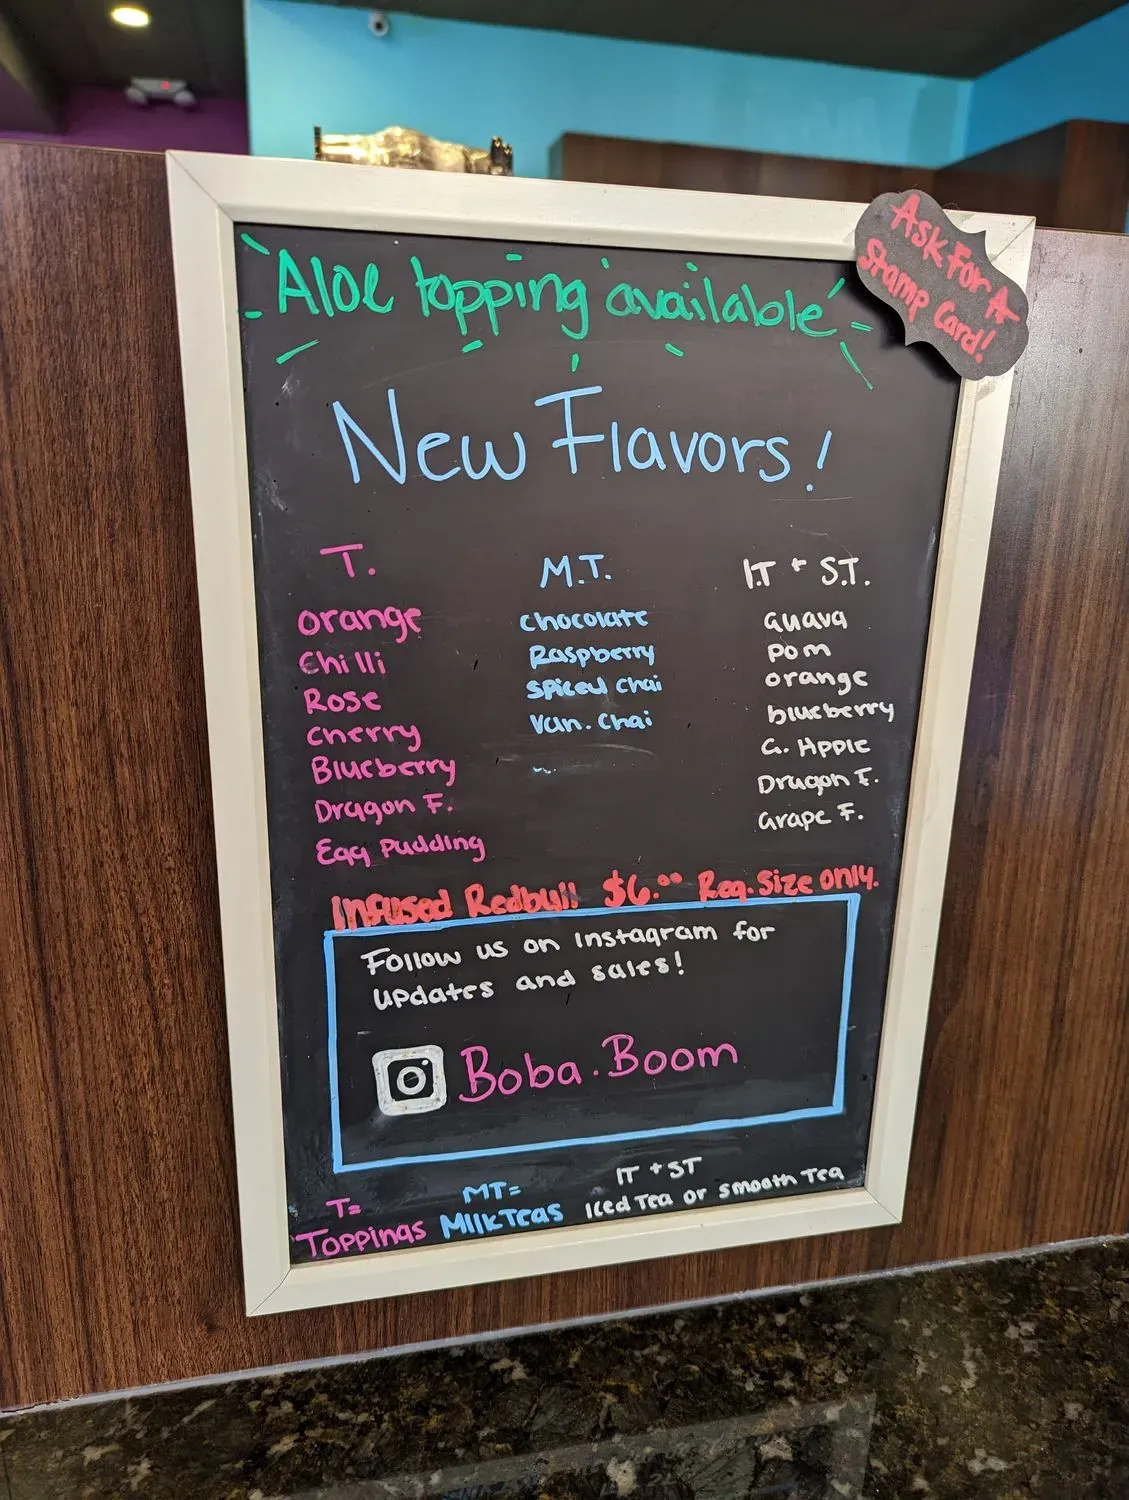 Aloe topping available
Ask For A
Stamp Card!
New Flavors!
T.
orange
Chilli
Rose
cherry
Blueberry
Dragon F.
Egg Pudding
M.T.
chocolate
Raspberry
spiced chai
Van. chai
I.T + S.T.
Guava
Pom
orange
blueberry
G. Apple
Dragon F.
Grape F.
Infused Redbull $6.00 Reg. Size only.
Follow us on Instagram for
updates and sales!
Boba.Boom
T=
Toppings
MT=
Milk Teas
IT + ST
Iced Tea or smooth Tea